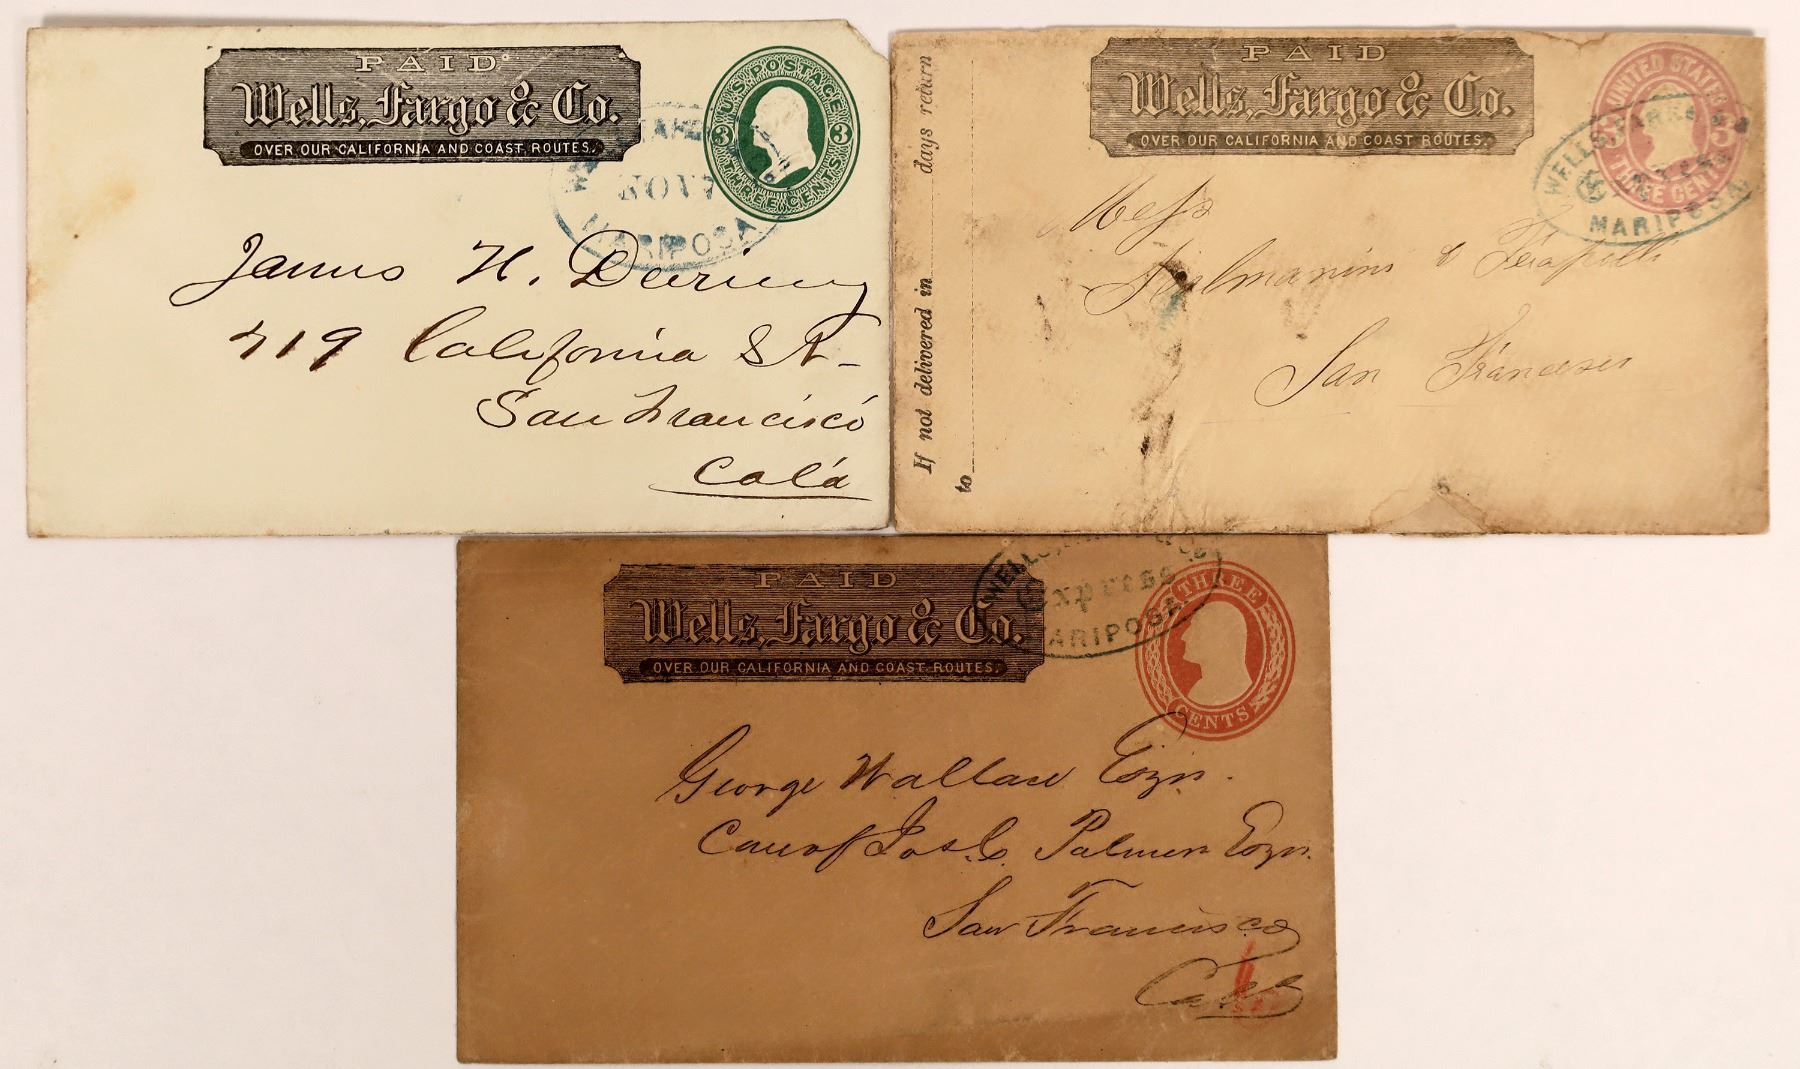 PAID
Wells, Fargo & Co.
OVER OUR CALIFORNIA AND COAST ROUTES.
U.S. POSTAGE
3 3
THREE CENTS
NOV 7
MARIPOSA
James H. Deering
419 California St
San Francisco
Cala
If not delivered in days return
to
PAID
Wells, Fargo & Co.
OVER OUR CALIFORNIA AND COAST ROUTES.
UNITED STATES
3
THREE CENTS
WELLS, FARGO &
MARIPOSA.
Mess
San Francisco
PAID
Wells, Fargo & Co.
OVER OUR CALIFORNIA AND COAST ROUTES.
WELLS, & CO.
Express
MARIPOSA
THREE
CENTS
George Wallace Esqr.
Care of Jos. C. Palmer Esqr.
San Francisco
Cal